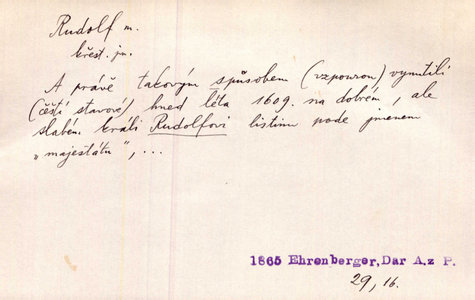 Rudolf m.
křest. jm.
A právě takovým způsobem (vzpourou) vynutili
(čeští stavové) hned léta 1609. na dobrém, ale
slabém králi Rudolfovi listinu pode jmenem
„majestátu", ...
1865 Ehrenberger, Dar A. z P.
29, 16.